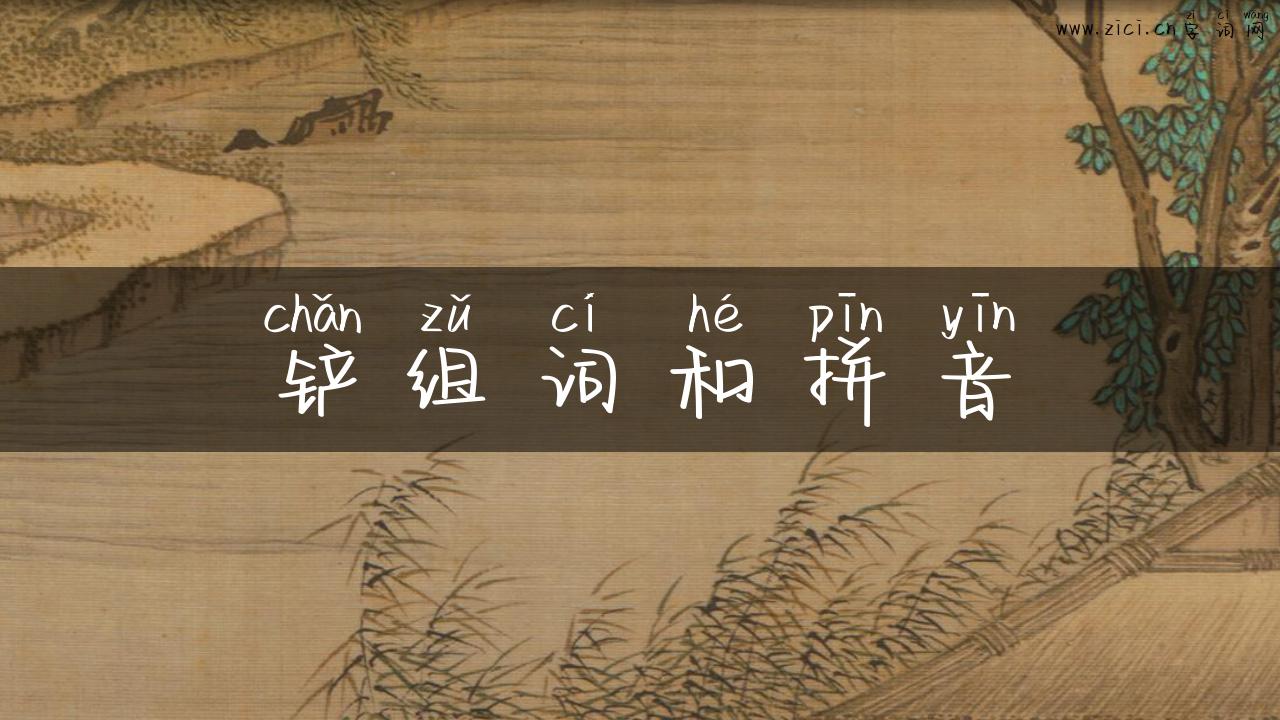 zì cí wǎng
www.zici.cn字词网
chǎn zǔ cí hé pīn yīn
铲组词和拼音